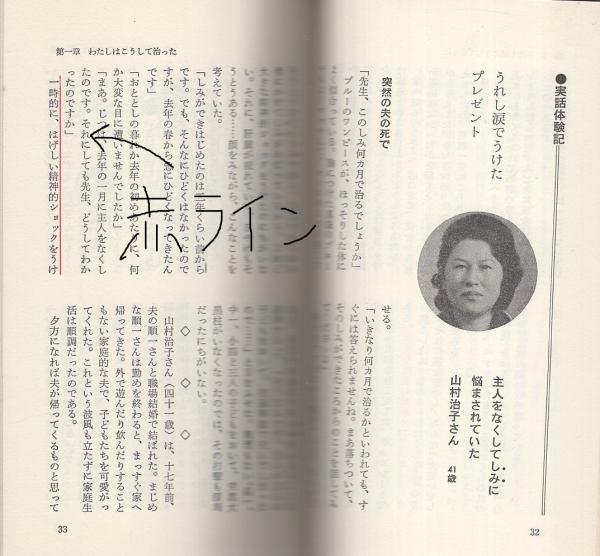 ●実話体験記
うれし涙でうけた
プレゼント
主人をなくしてしみに
悩まされていた
山村治子さん 41歳
突然の夫の死で
「先生、このしみ何カ月で治るでしょうか」
ブルーのワンピースが、ほっそりした体に
せる。
「いきなり何カ月で治るかといわれても、す
ぐには答えられませんね。まあ落ちついて、
そのしみができたころからのことを話して
32
第一章 わたしはこうして治った
考えていた。
「しみができはじめたのは二年くらい前から
です。でも、そんなにひどくはなかったので
すが、去年の春から急にひどくなってきたん
です」
「おととしの暮れか去年の初めあたりに、何
か大変な目に遭いませんでしたか」
「まあ。じつは去年の一月に主人をなくし
たのです。それにしても先生、どうしてわか
ったのですか」
一時的に、はげしい精神的ショックをうけ
赤ライン
だったにちがいない。
◇ ◇ ◇
山村治子さん（四十一歳）は、十七年前、
夫の順一さんと職場結婚で結ばれた。まじめ
な順一さんは勤めを終わると、まっすぐ家へ
帰ってきた。外で遊んだり飲んだりすること
もない家庭的な夫で、子どもたちを可愛がっ
てくれた。これという波風も立たずに家庭生
活は順調だったのである。
夕方になれば夫が帰ってくるものと思って
33